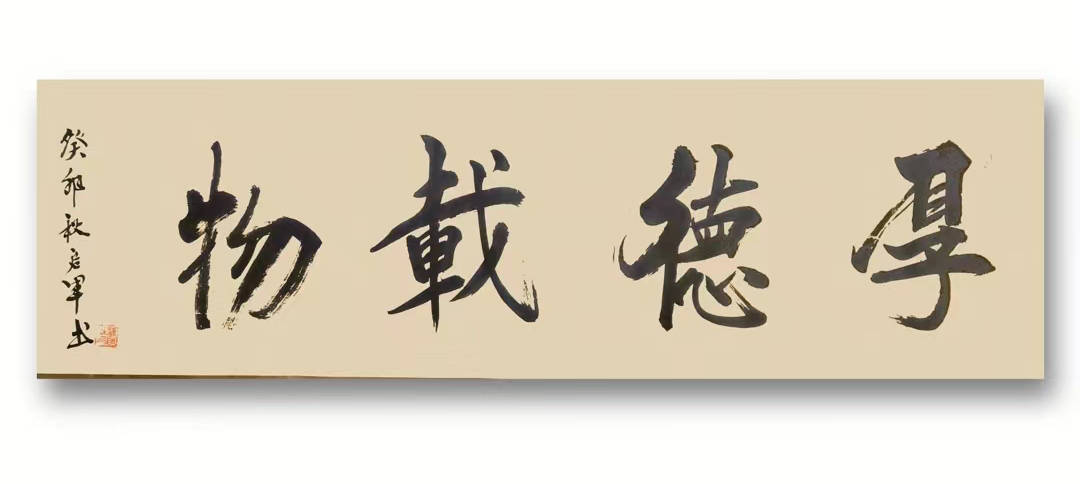 厚德載物
癸卯秋君軍书